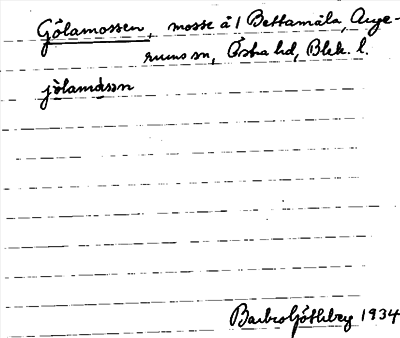 Gölamossen, mosse å 1 Bettamåla, Auge-
rums sn, Östra hd, Blek. l.
jölamåsən
Barbro Göthberg 1934